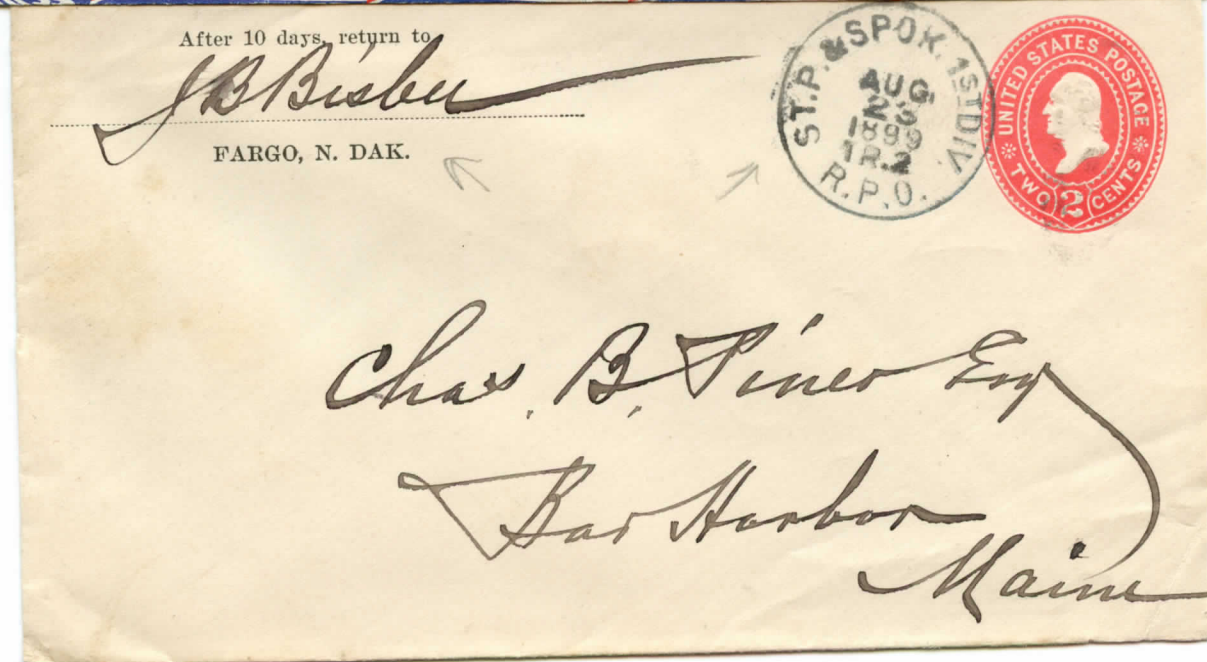 After 10 days, return to
J B Bisbee
FARGO, N. DAK.
ST. P. & SPOK. 1ST DIV.
AUG
23
1899
R.P.O.
UNITED STATES POSTAGE
TWO 2 CENTS
Chas. B. Pineo Esq
Bar Harbor
Maine